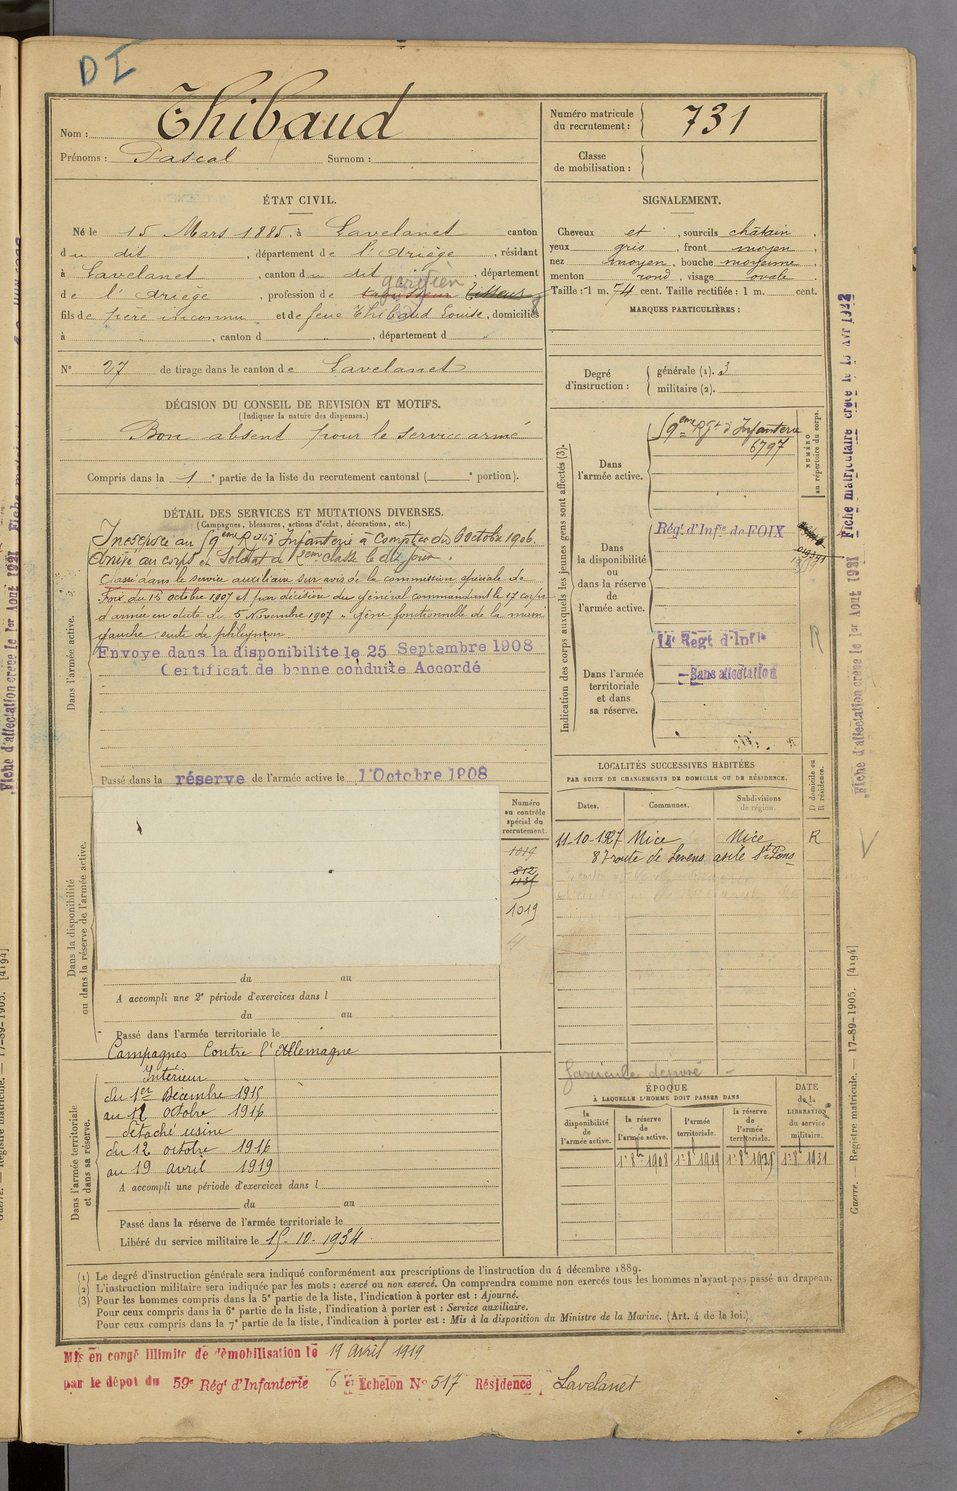 DI
Nom : Thibaud
Prénoms : Pascal Surnom :
Numéro matricule du recrutement : 731
Classe de mobilisation :
ÉTAT CIVIL.
Né le 15 Mars 1885, à Lavelanet canton
du dit, département de l'Ariège, résidant
à Lavelanet, canton du dit, département
gardien
de l'Ariège, profession de Tisseur
fils de père inconnu et de feue Thibaud Louise, domiciliés
à , canton d , département d
N° 27 de tirage dans le canton de Lavelanet
DÉCISION DU CONSEIL DE REVISION ET MOTIFS.
(Indiquer la nature des dispenses.)
Bon absent pour le service armé
Compris dans la 1e partie de la liste du recrutement cantonal ( e portion).
DÉTAIL DES SERVICES ET MUTATIONS DIVERSES.
(Campagnes, blessures, actions d'éclat, décorations, etc.)
Incorporé au 59eme Rgt d'Infanterie à Compter du 8 Octobre 1906.
Arrivé au corps et Soldat de 2eme classe le dit jour.
Classé dans le service auxiliaire sur avis de la commission spéciale de
Foix du 15 octobre 1907 et par décision du général commandant le 17 corps
d'armée en date du 5 Novembre 1907 "gêne fonctionnelle de la main
gauche, suite de phlegmon
Envoyé dans la disponibilite le 25 Septembre 1908
Certificat de bonne conduite Accordé
Dans l'armée active.
Passé dans la réserve de l'armée active le 1 Octobre 1908
SIGNALEMENT.
Cheveux et, sourcils châtain,
yeux gris, front moyen,
nez moyen, bouche moyenne,
menton rond, visage ovale
Taille : 1 m. 74 cent. Taille rectifiée : 1 m. cent.
MARQUES PARTICULIÈRES :
Degré d'instruction : générale (1). 3
militaire (2).
Indication des corps auxquels les jeunes gens sont affectés (3).
NUMÉRO au répertoire du corps.
Dans l'armée active.
59eme Rgt d'Infanterie
6797
Dans la disponibilité ou dans la réserve de l'armée active.
Régt d'Infie de FOIX
Dans l'armée territoriale et dans sa réserve.
14 Régt d'Infie
Sans affectation
R
LOCALITÉS SUCCESSIVES HABITÉES
PAR SUITE DE CHANGEMENTS DE DOMICILE OU DE RÉSIDENCE.
D domicile ou R résidence.
Dates. Communes. Subdivisions de région.
11-10-1927 Nice Nice R
87 route de Levens asile St Pons
Dans la disponibilité ou dans la réserve de l'armée active.
Numéro au contrôle spécial du recrutement.
1014
812
1019
du au
A accompli une 2e période d'exercices dans l
du au
Passé dans l'armée territoriale le
Campagnes Contre l'Allemagne
Intérieur
du 1er Décembre 1915
au 12 Octobre 1916
détaché usine
du 12 octobre 1916
au 19 avril 1919
Dans l'armée territoriale et dans sa réserve.
A accompli une période d'exercices dans l
du au
Passé dans la réserve de l'armée territoriale le
Libéré du service militaire le 15-10-1934
fascicule
ÉPOQUE
À LAQUELLE L'HOMME DOIT PASSER DANS
DATE de la LIBÉRATION du service militaire.
la disponibilité de l'armée active.
la réserve de l'armée active.
l'armée territoriale.
la réserve de l'armée territoriale.
1er 8bre 1908 1er 8bre 1919 1er 8bre 1925 1er 8bre 1931
(1) Le degré d'instruction générale sera indiqué conformément aux prescriptions de l'instruction du 4 décembre 1889.
(2) L'instruction militaire sera indiquée par les mots : exercé ou non exercé. On comprendra comme non exercés tous les hommes n'ayant pas passé au drapeau.
(3) Pour les hommes compris dans la 5e partie de la liste, l'indication à porter est : Ajourné.
Pour ceux compris dans la 6e partie de la liste, l'indication à porter est : Service auxiliaire.
Pour ceux compris dans la 7e partie de la liste, l'indication à porter est : Mis à la disposition du Ministre de la Marine. (Art. 4 de la loi.)
Mis en congé illimité de démobilisation le 19 avril 1919
par le dépôt du 59e Régt d'Infanterie 6 e Echelon N° 517 Résidence Lavelanet
Fiche d'affectation crééé le 1er Août 1921
Fiche matriculaire créée le
Guerre. — Registre matricule. — 17-89-1905. [4194]